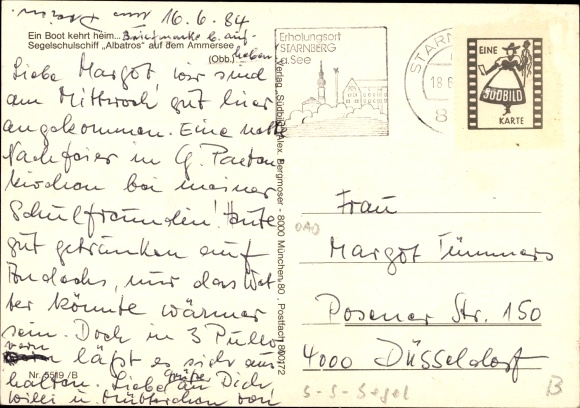 16.6.84
Ein Boot kehrt heim... Briefmarke b. auf-
Segelschulschiff „Albatros" auf dem Ammersee
(Obb.) heben
Liebe Margot wir sind
am Mittwoch gut hier
angekommen. Eine nette
Nachfeier in G. Partenkirchen
bei meiner
Schulfreundin! Heute
gut getrunken auf
nur das Wet
ter könnte wärmer
sein. Doch in 3 Pullo
vern läßt es sich aus
halten. Liebe Grüße an Dich
Willi u. Mütterchen von
Nr. 5519 /B
Verlag „Südbild" Alex. Bergmoser - 8000 München 80, Postfach 800172
Erholungsort
STARNBERG
a.See
STARN
18.6
8
EINE
SÜDBILD
KARTE
Frau
Margot Tümmers
Posener Str. 150
4000 Düsseldorf
S-S-Segel
B